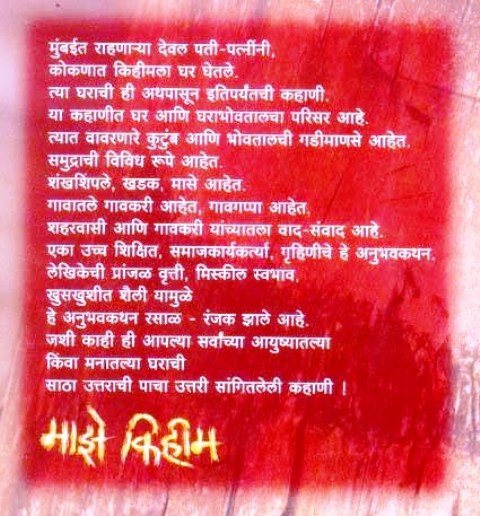 मुंबईत राहणाऱ्या देवल पती-पत्नींनी,
कोकणात किहीमला घर घेतले.
त्या घराची ही अथपासून इतिपर्यंतची कहाणी.
या कहाणीत घर आणि घराभोवतालचा परिसर आहे.
त्यात वावरणारे कुटुंब आणि भोवतालची गडीमाणसे आहेत.
समुद्राची विविध रूपे आहेत.
शंखशिंपले, खडक, मासे आहेत.
गावातले गावकरी आहेत, गावगप्पा आहेत.
शहरवासी आणि गावकरी यांच्यातला वाद-संवाद आहे.
एका उच्च शिक्षित, समाजकार्यकर्त्या, गृहिणीचे हे अनुभवकथन.
लेखिकेची प्रांजळ वृत्ती, मिस्कील स्वभाव,
खुसखुशीत शैली यामुळे
हे अनुभवकथन रसाळ - रंजक झाले आहे.
जशी काही ही आपल्या सर्वांच्या आयुष्यातल्या
किंवा मनातल्या घराची
साठा उत्तराची पाचा उत्तरी सांगितलेली कहाणी !
माझे किहीम